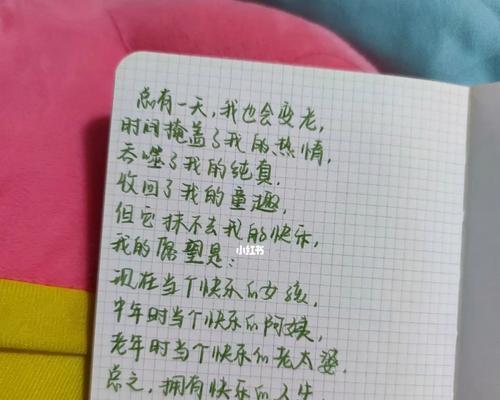 总有一天，我也会变老，
时间掩盖了我的热情，
吞噬了我的纯真，
收回了我的童趣，
但它抹不去我的快乐，
我的愿望是：
现在当个快乐的女孩，
中年时当个快乐的阿姨，
老年时当个快乐的老太婆，
总之，拥有快乐的人生，
小红书